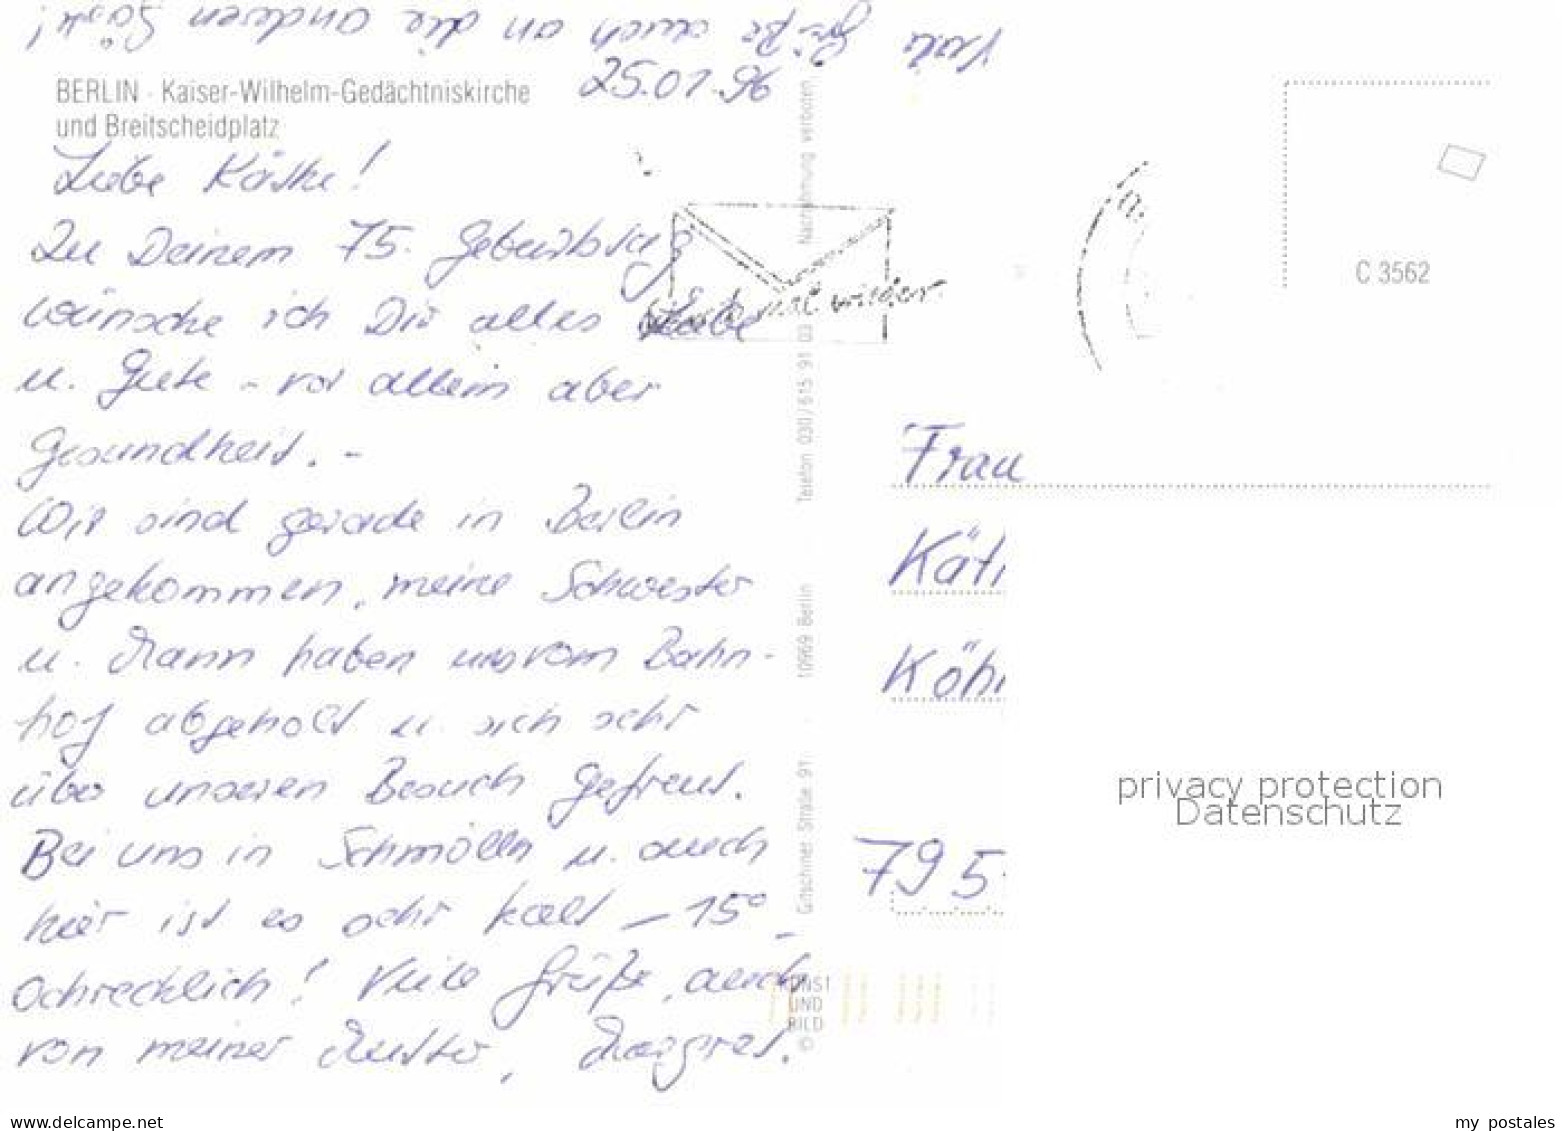 Viele Grüße auch an die anderen Gäste!
BERLIN · Kaiser-Wilhelm-Gedächtniskirche
und Breitscheidplatz
25.01.96
Liebe Käthe!
Zu Deinem 75. Geburtstag
wünsche ich Dir alles Liebe
u. Gute - vor allem aber
Gesundheit. -
Wir sind gerade in Berlin
angekommen, meine Schwester
u. Mann haben uns vom Bahn-
hof abgeholt u. sich sehr
über unseren Besuch gefreut.
Bei uns in Schmölln u. auch
hier ist es sehr kalt - 15°
schrecklich! Viele Grüße, auch
von meiner Mutter, Margret.
mal wieder
© KUNST
UND
BILD
Gitschiner Straße 91 · 10969 Berlin · Telefon 030/615 91 03 Nachahmung verboten
C 3562
Frau
Kät
Köh
795
privacy protection
Datenschutz
www.delcampe.net
my postales